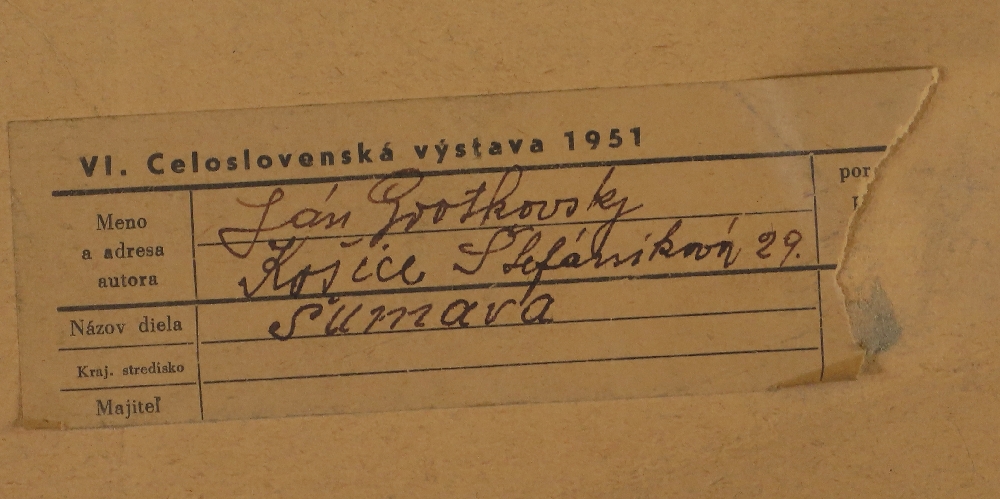 VI. Celoslovenská výstava 1951
Meno
a adresa
autora
Ján Grotkovský
Košice Štefánikova 29.
por
Názov diela
Šumava
Kraj. stredisko
Majiteľ